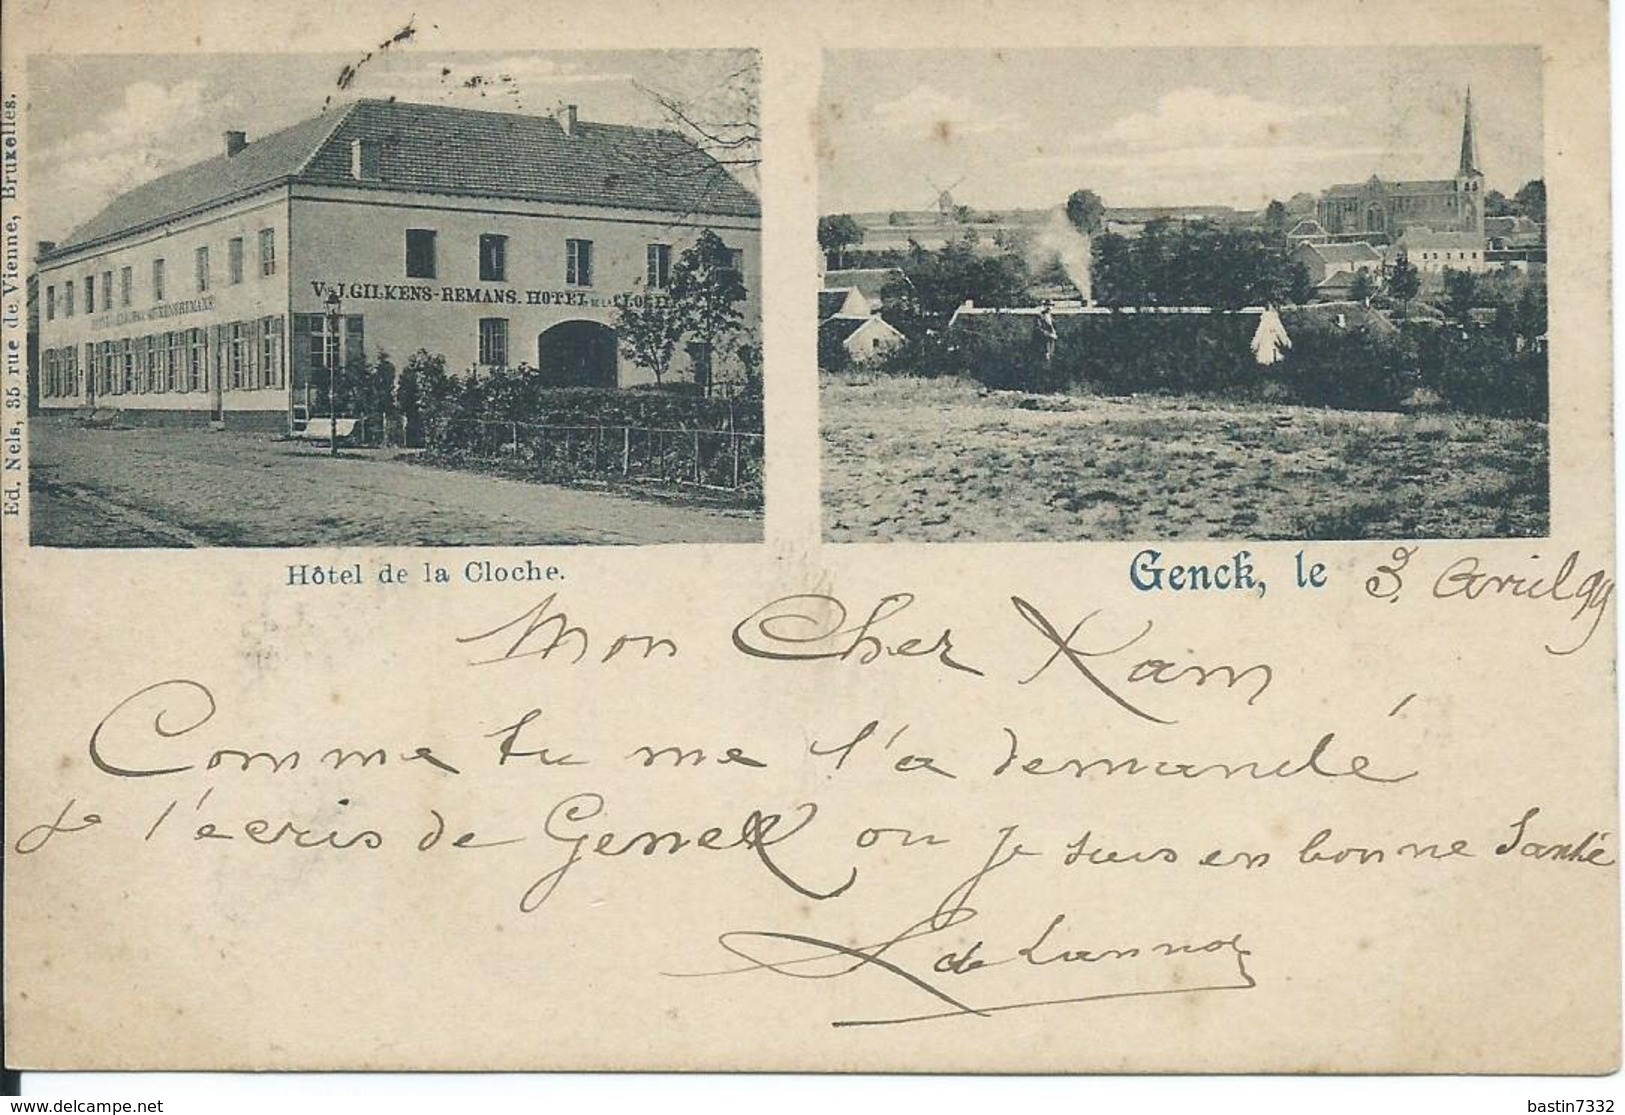 Ed. Nels, 35 rue de Vienne, Bruxelles.
Vve J. GILKENS-REMANS. HOTEL DE LA CLOCHE
Hôtel de la Cloche.
Genck, le 3 Avril 99
Mon Cher Xam
Comme tu me l'a demandé
je t'écris de Genck ou je suis en bonne Santé
L de Lannoy
delcampe.net
bastin7332